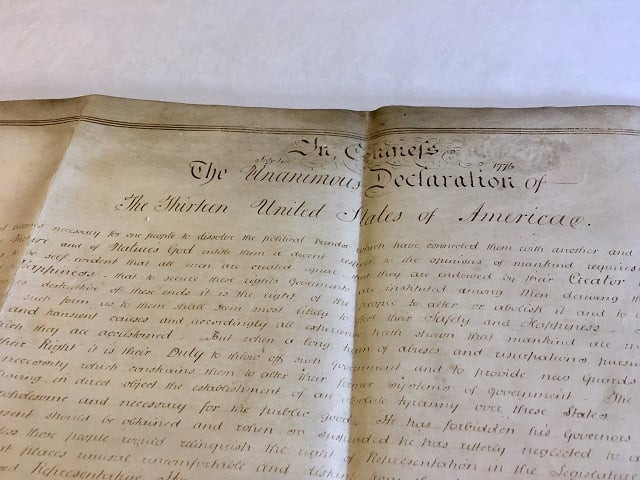 In Congress
July 4 1776
The Unanimous Declaration of
The Thirteen United States of America.
necessary for one people to dissolve the political bands which have connected them with another and
Nature and of Natures God entitle them a decent respect to the opinions of mankind requires
be self evident that all men are created equal that they are endowed by their Creator
Happiness that to secure these rights Governments are instituted among Men deriving
is destructive of these ends it is the right of the people to alter or abolish it and to
such form as to them shall seem most likely to effect their Safety and Happiness
and transent causes and accordingly all experience hath shewn that mankind are
which they are accustomed But when a long train of abuses and usurpations pursu
their Right it is their Duty to throw off such Government and to provide new Guards
necessity which constrains them to alter their former Systems of Government The
having in direct object the establishment of an absolute tyranny over these States
wholesome and necessary for the public good He has forbidden his Governors
should be obtained and when so suspended he has utterly neglected to
those people would relinquish the right of Representation in the Legislature
at places unusual uncomfortable and distant from
Representative